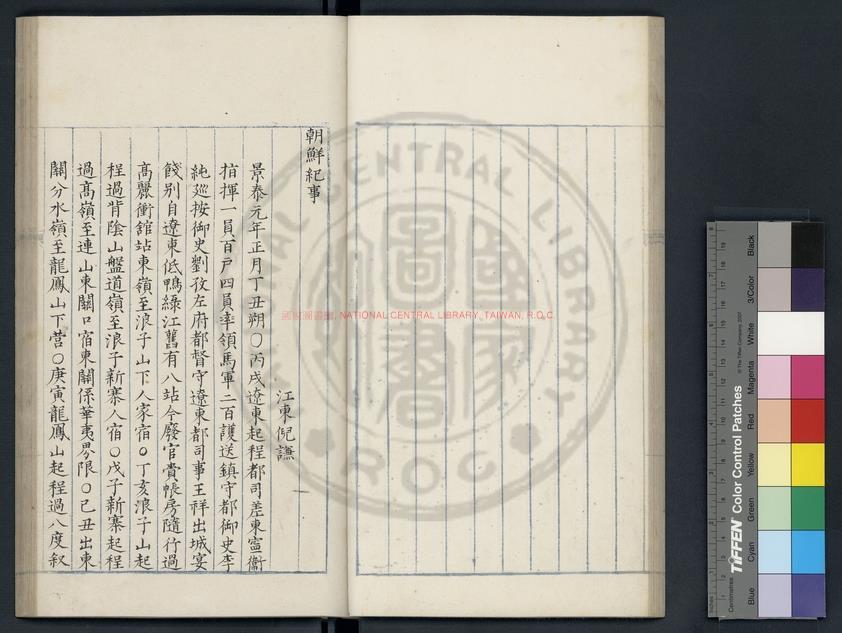 朝鮮紀事
江東倪謙
景泰元年正月丁丑朔○丙戌遼東起程都司差東寧衛
指揮一員百戶四員率領馬軍二百護送鎮守都御史李
純廵按御史劉孜左府都督守遼東都司事王祥出城宴
餞别自遼東低鴨綠江舊有八站今廢官賫帳房隨行過
高麗衝舘站東嶺至浪子山下人家宿○丁亥浪子山起
程過背陰山盤道嶺至浪子新寨人宿○戊子新寨起程
過高嶺至連山東關口宿東關係華夷界限○己丑出東
關分水嶺至龍鳳山下营○庚寅龍鳳山起程過八度叙
國家圖書館, NATIONAL CENTRAL LIBRARY, TAIWAN, R.O.C.
NATIONAL CENTRAL LIBRARY
R.O.C.
國家圖書
TIFFEN® Color Control Patches
© The Tiffen Company, 2007
Inches
Centimetres
Blue
Cyan
Green
Yellow
Red
Magenta
White
3/Color
Black